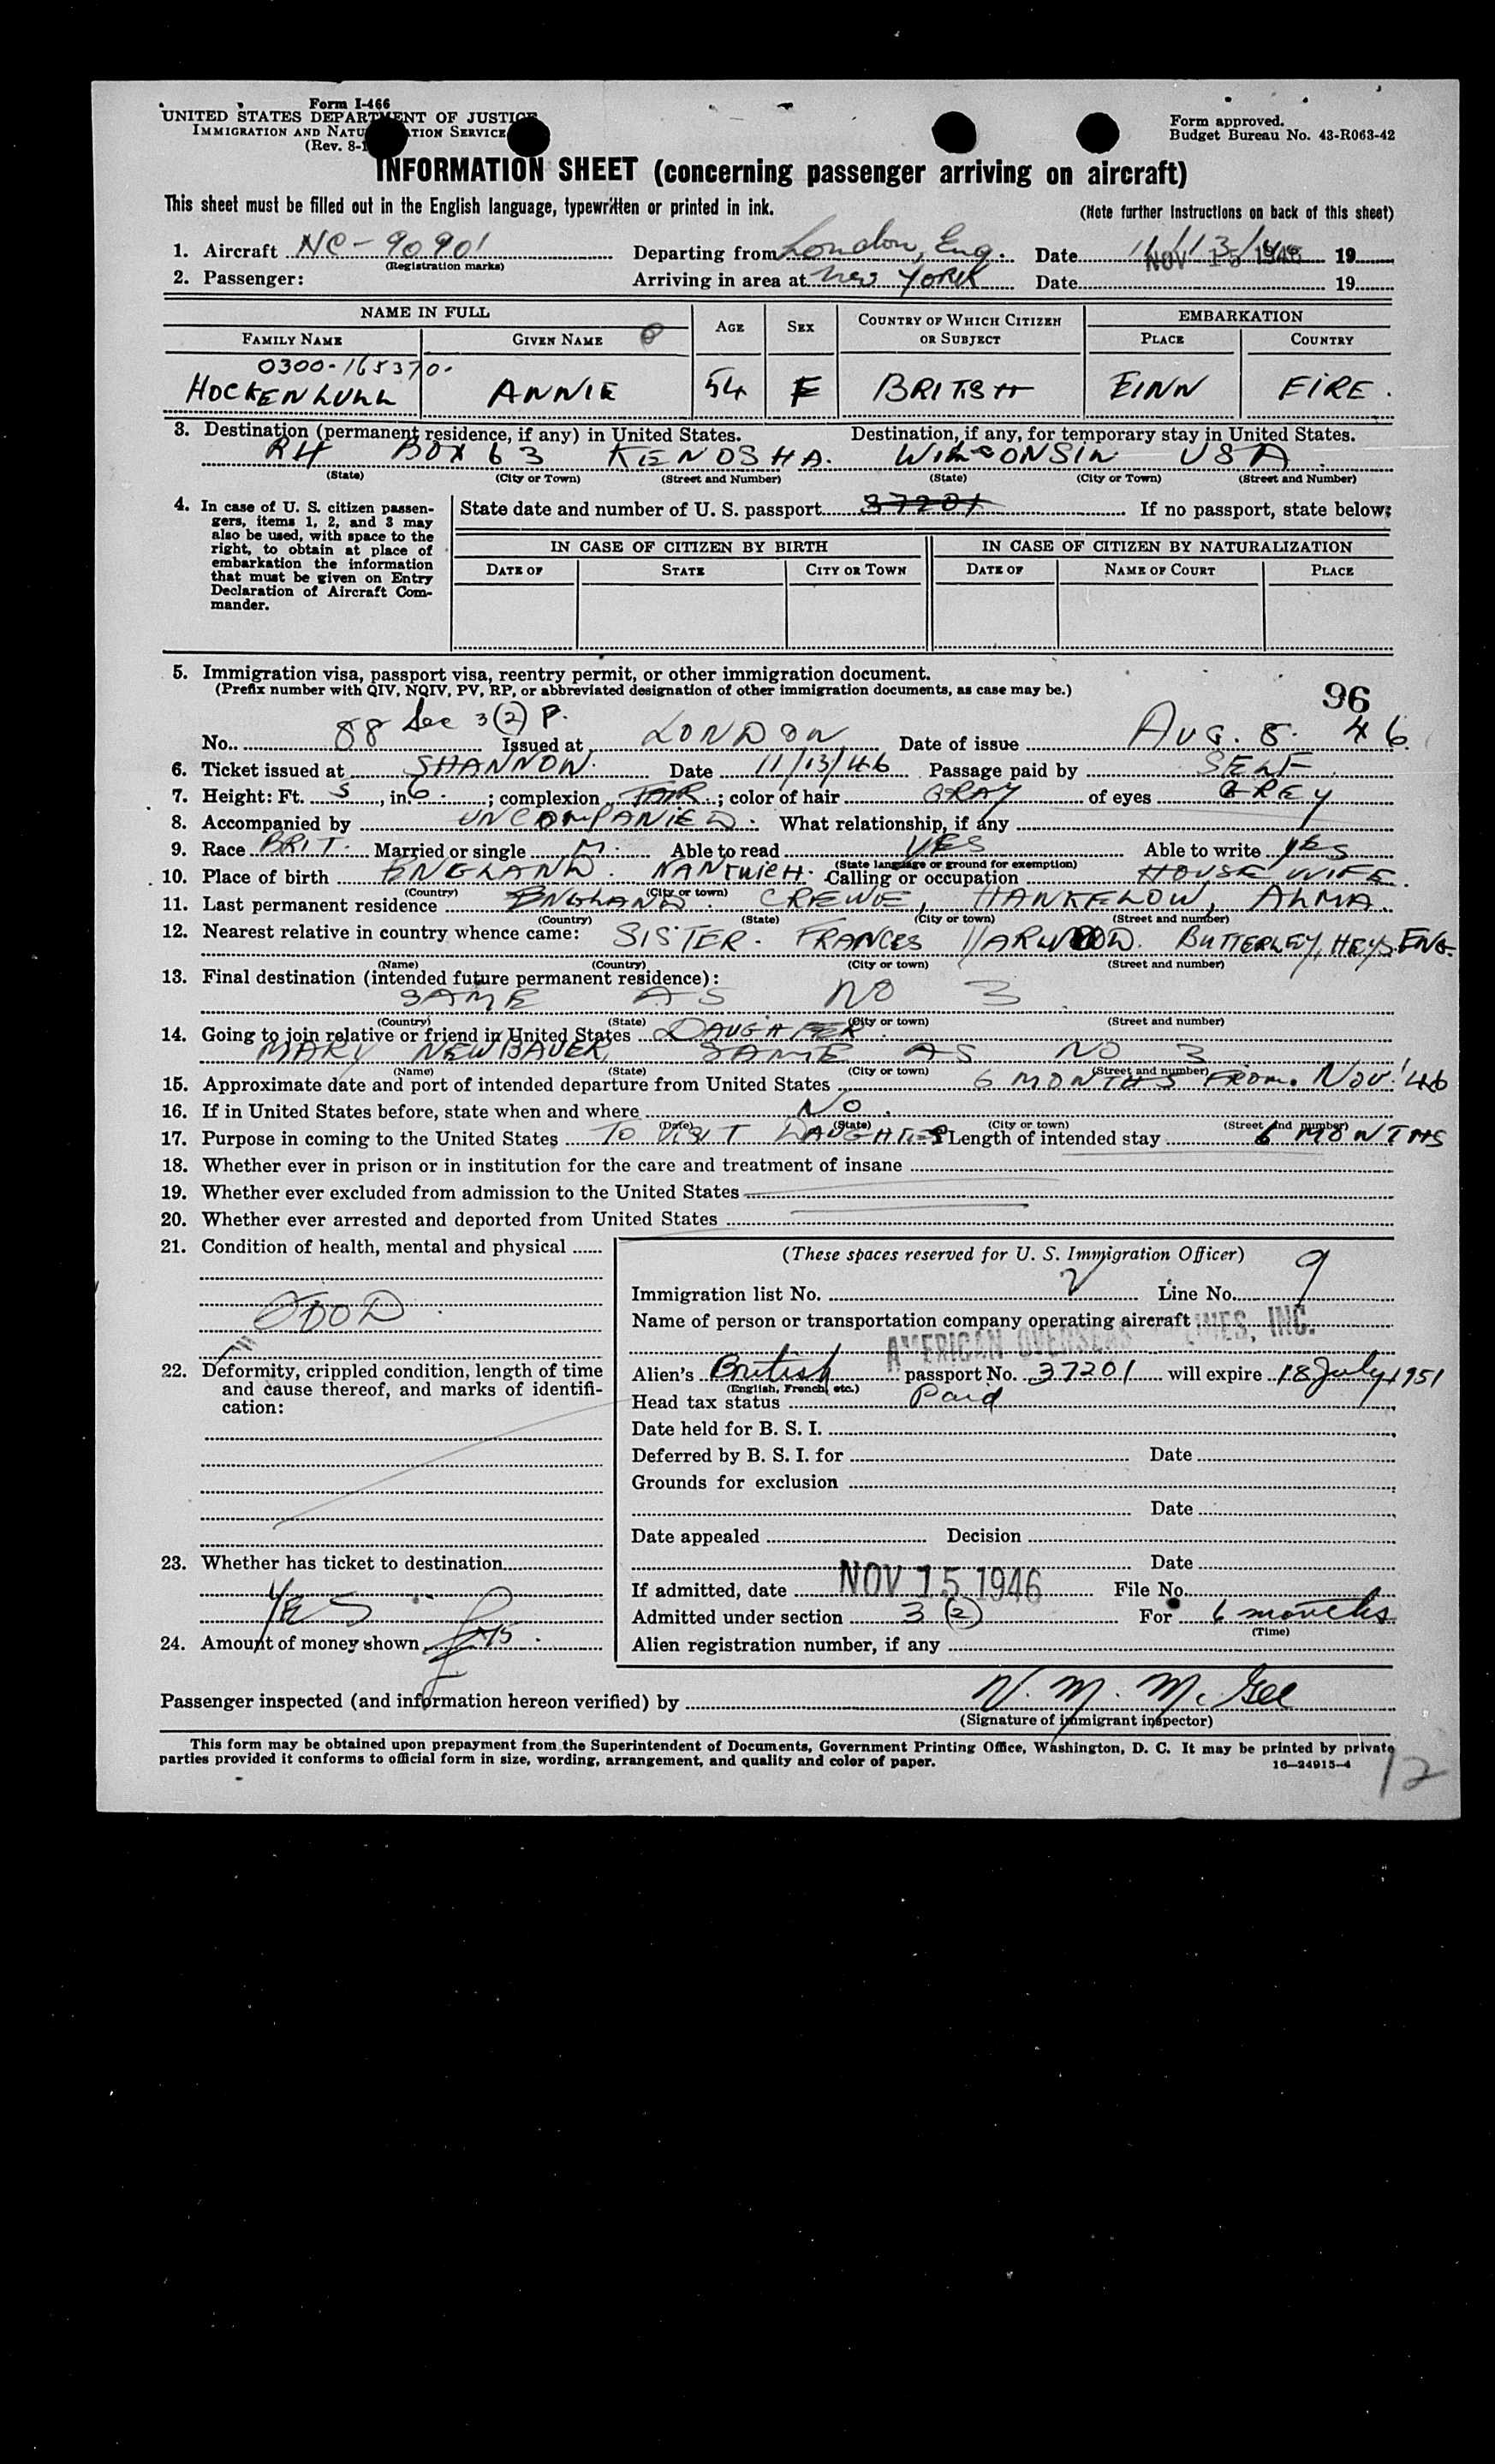 Form I-466
UNITED STATES DEPARTMENT OF JUSTICE
IMMIGRATION AND NATURALIZATION SERVICE
(Rev. 8-1
Form approved.
Budget Bureau No. 43-R063-42
INFORMATION SHEET (concerning passenger arriving on aircraft)
This sheet must be filled out in the English language, typewritten or printed in ink.
(Note further instructions on back of this sheet)
1. Aircraft NC-90901 Departing from London, Eng. Date 11/13/46 NOV 15 1946 19
(Registration marks)
2. Passenger: Arriving in area at New YORK Date 19
NAME IN FULL AGE SEX COUNTRY OF WHICH CITIZEN OR SUBJECT EMBARKATION
FAMILY NAME GIVEN NAME PLACE COUNTRY
0300-165370.
HOCKENHULL ANNIE 54 F BRITISH EINN EIRE.
3. Destination (permanent residence, if any) in United States. Destination, if any, for temporary stay in United States.
R4 BOX 63 KENOSHA. WISCONSIN USA.
(State) (City or Town) (Street and Number) (State) (City or Town) (Street and Number)
4. In case of U. S. citizen passengers, items 1, 2, and 3 may also be used, with space to the right, to obtain at place of embarkation the information that must be given on Entry Declaration of Aircraft Commander.
State date and number of U. S. passport 37201 If no passport, state below:
IN CASE OF CITIZEN BY BIRTH IN CASE OF CITIZEN BY NATURALIZATION
DATE OF STATE CITY OR TOWN DATE OF NAME OF COURT PLACE
5. Immigration visa, passport visa, reentry permit, or other immigration document.
(Prefix number with QIV, NQIV, PV, RP, or abbreviated designation of other immigration documents, as case may be.)
96
No. 88 Sec 3(2) P. Issued at LONDON Date of issue AUG. 8. 46
6. Ticket issued at SHANNON. Date 11/13/46 Passage paid by SELF
7. Height: Ft. 5, in. 6; complexion FAIR; color of hair GRAY of eyes GREY
8. Accompanied by UNCOMPANIED. What relationship, if any
9. Race BRIT. Married or single M. Able to read YES Able to write YES
(State language or ground for exemption)
10. Place of birth ENGLAND. NANTWICH. Calling or occupation HOUSE WIFE.
(Country) (City or town)
11. Last permanent residence ENGLAND. CREWE, HANKELOW, ALMA.
(Country) (State) (City or town) (Street and number)
12. Nearest relative in country whence came: SISTER. FRANCES HARWOOD. BUTTERLEY, HEYS. ENG.
(Name) (Country) (City or town) (Street and number)
13. Final destination (intended future permanent residence):
SAME AS NO 3
(Country) (State) (City or town) (Street and number)
14. Going to join relative or friend in United States DAUGHTER.
MARY NEWBAUER, SAME AS NO 3
(Name) (State) (City or town) (Street and number)
15. Approximate date and port of intended departure from United States 6 MONTHS FROM. NOV. '46
16. If in United States before, state when and where NO.
(Date) (State) (City or town) (Street and number)
17. Purpose in coming to the United States TO VISIT DAUGHTER Length of intended stay 6 MONTHS
18. Whether ever in prison or in institution for the care and treatment of insane
19. Whether ever excluded from admission to the United States
20. Whether ever arrested and deported from United States
21. Condition of health, mental and physical
GOOD
22. Deformity, crippled condition, length of time and cause thereof, and marks of identification:
23. Whether has ticket to destination
YES
24. Amount of money shown
(These spaces reserved for U. S. Immigration Officer)
Immigration list No. 2 Line No. 9
Name of person or transportation company operating aircraft
AMERICAN OVERSEAS AIRLINES, INC.
Alien's British passport No. 37201 will expire 18 July 1951
(English, French, etc.)
Head tax status Paid
Date held for B. S. I.
Deferred by B. S. I. for Date
Grounds for exclusion
Date
Date appealed Decision
Date
If admitted, date NOV 15 1946 File No.
Admitted under section 3 (2) For 6 months
(Time)
Alien registration number, if any
Passenger inspected (and information hereon verified) by V. M. McGee
(Signature of immigrant inspector)
This form may be obtained upon prepayment from the Superintendent of Documents, Government Printing Office, Washington, D. C. It may be printed by private
parties provided it conforms to official form in size, wording, arrangement, and quality and color of paper.
16—24915-4
12